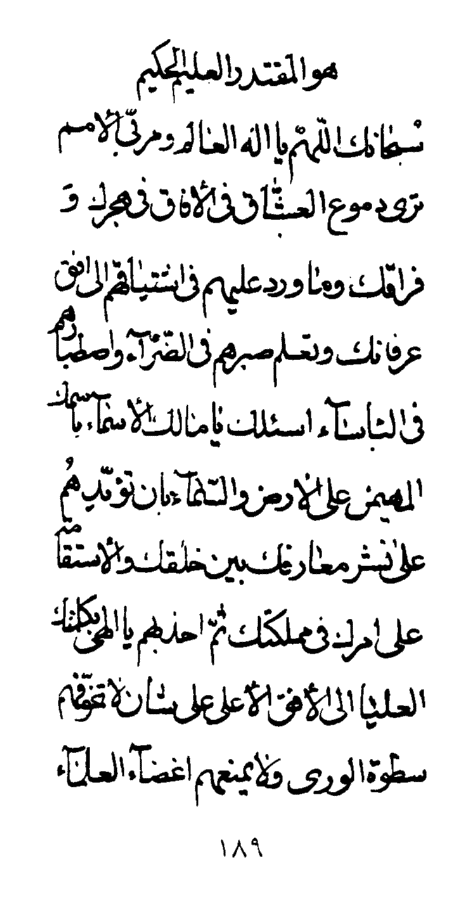 هو المقتدر العليم الحكيم
سبحانك اللّهمّ يا اله العالم و مربّی الأمم
تری دموع العشّاق فی الآفاق فی هجرك و
فراقك و ما ورد عليهم فی اشتياقهم الی افق
عرفانك و تعلم صبرهم فی الضّرّآء و اصطبارهم
فی البأسآء اسئلك يا مالك الأسمآء باسمك
المهيمن علی الارض و السّمآء بان تؤيّدهم
علی نشر معارفك بين خلقك و الأستقامة
علی امرك فی مملكتك ثمّ اجذبهم يا الهی بكلمتك
العليا الی الأفق الأعلی علی شأن لا تخوّفهم
سطوة الوری و لا يمنعهم اغضآء العلمآء
١٨٩